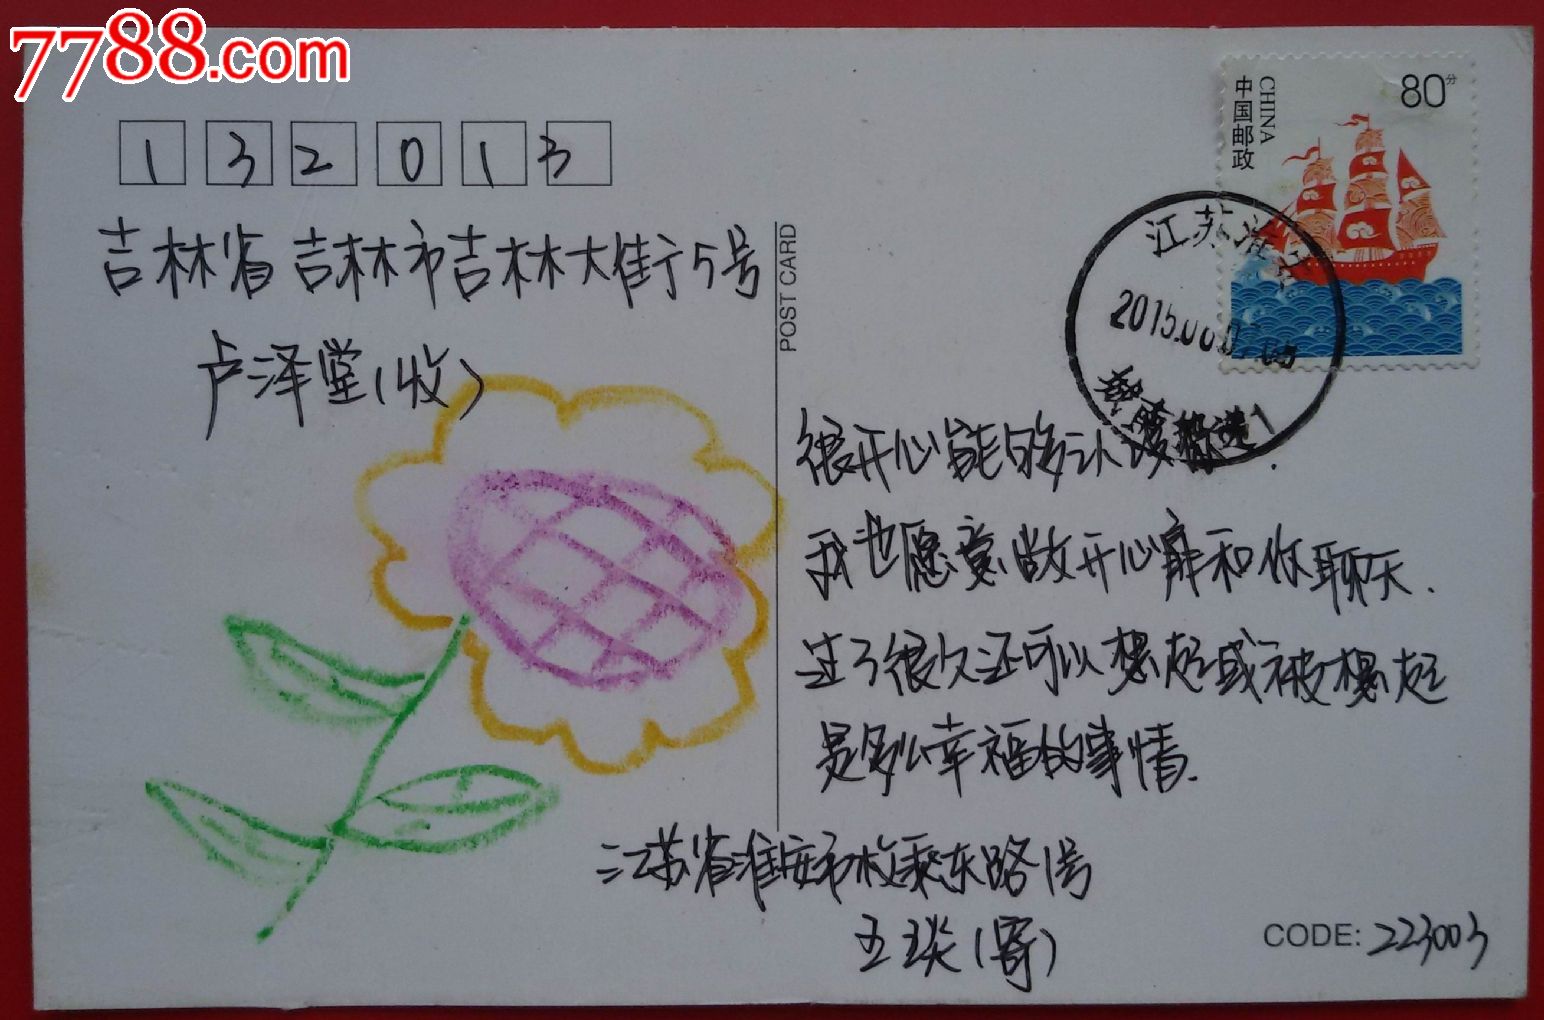 7788.com
132013
吉林省吉林市吉林大街5号
卢泽堂(收)
POST CARD
80分
CHINA
中国邮政
江苏淮
2015.06.07.
很开心能够认
我也愿意做开心 和你聊天.
过了很久还可以想起或被想起
是多么幸福的事情.
江苏省淮安市枚乘东路1号
(寄)
CODE: 223003